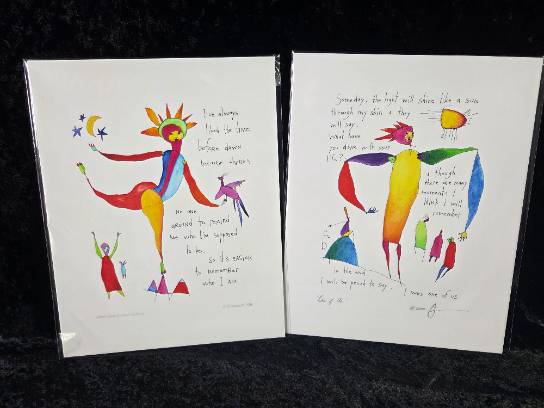 I've always
liked the time
before dawn
because there's
no one
around to remind
me who I'm supposed
to be
so it's easier
to remember
who I am
Someday, the light will shine like a sun
through my skin & they
will say,
what have
you done with your
life?
& though
there are many
moments I
think I will
remember
in the end,
I will be proud to say,
I was one of us